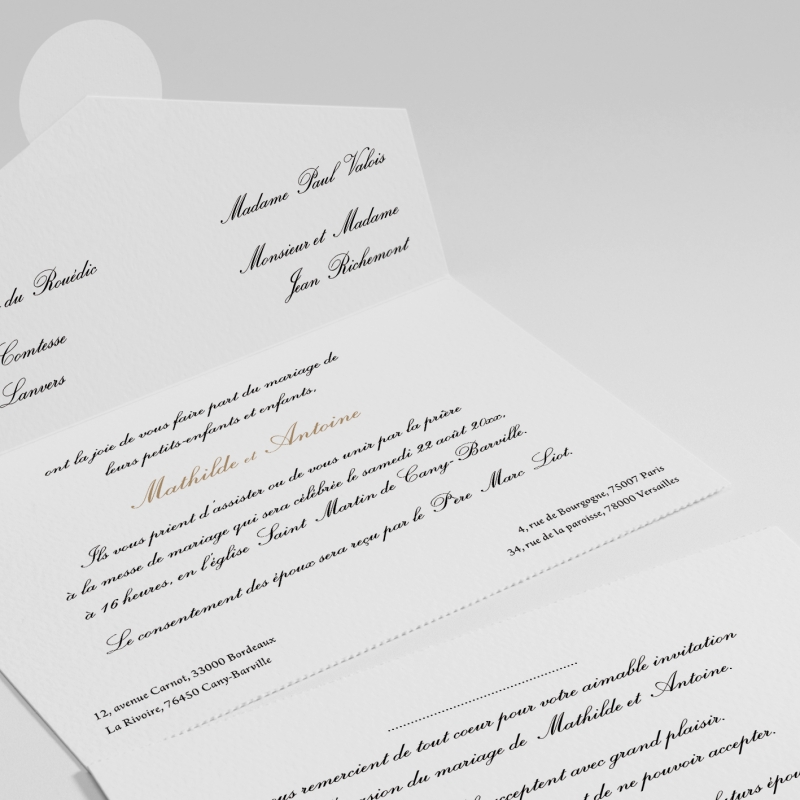 du Rouëdic
Comtesse
Lanvers
Madame Paul Valois
Monsieur et Madame
Jean Richemont
ont la joie de vous faire part du mariage de
leurs petits-enfants et enfants.
Mathilde et Antoine
Ils vous prient d'assister ou de vous unir par la prière
à la messe de mariage qui sera célébrée le samedi 22 août 20xx,
à 16 heures, en l'église Saint Martin de Cany-Barville.
Le consentement des époux sera reçu par le Père Marc Liot.
12, avenue Carnot, 33000 Bordeaux
La Rivoire, 76450 Cany-Barville
4, rue de Bourgogne, 75007 Paris
34, rue de la paroisse, 78000 Versailles
remercient de tout coeur pour votre aimable invitation
du mariage de Mathilde et Antoine.
acceptent avec grand plaisir.
de ne pouvoir accepter.